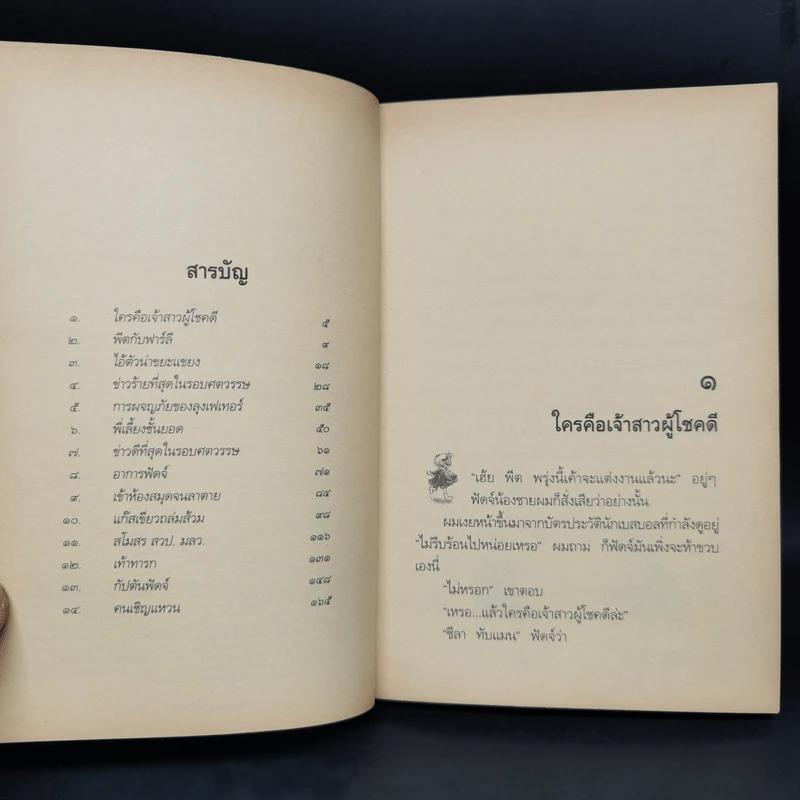 สารบัญ
๑. ใครคือเจ้าสาวผู้โชคดี ๕
๒. พีตกับฟาร์ลี ๙
๓. ไอ้ตัวน่าขยะแขยง ๑๘
๔. ข่าวร้ายที่สุดในรอบศตวรรษ ๒๘
๕. การผจญภัยของลุงเฟเทอร์ ๓๕
๖. พี่เลี้ยงชั้นยอด ๕๐
๗. ข่าวดีที่สุดในรอบศตวรรษ ๖๑
๘. อาการฟัดจ์ ๗๑
๙. เข้าห้องสมุดจนลาตาย ๘๔
๑๐. แก๊สเขียวถล่มส้วม ๙๘
๑๑. สโมสร สวป. มลว. ๑๑๖
๑๒. เท้าทารก ๑๓๑
๑๓. กัปตันฟัดจ์ ๑๔๘
๑๔. คนเชิญแหวน ๑๖๕
๑
ใครคือเจ้าสาวผู้โชคดี
"เฮ้ย พีต พรุ่งนี้เค้าจะแต่งงานแล้วนะ" อยู่ๆ
ฟัดจ์น้องชายผมก็สั่งเสียว่าอย่างนั้น
ผมเงยหน้าขึ้นมาจากบัตรประวัตินักเบสบอลที่กำลังดูอยู่
"ไม่รีบร้อนไปหน่อยเหรอ" ผมถาม ก็ฟัดจ์มันเพิ่งจะห้าขวบ
เองนี่
"ไม่หรอก" เขาตอบ
"เหรอ...แล้วใครคือเจ้าสาวผู้โชคดีล่ะ"
"ชีลา ทับแมน" ฟัดจ์ว่า